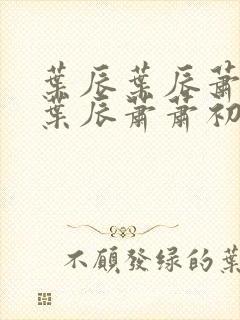 葉辰葉辰蕭
葉辰蕭蕭初
不顧發绿的葉